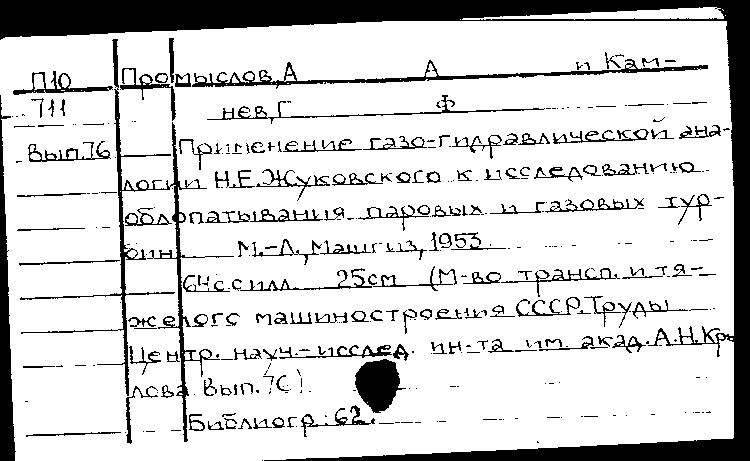 П10 Промыслов, А А и Кам-
711 нев, Г Ф
Вып.76 Применение газо-гидравлической ана-
логии Н.Е.Жуковского к исследованию
облопатывания паровых и газовых тур-
бин. М.-Л., Машгиз, 1953.
64с с илл. 25см (М-во трансп. и тя-
желого машиностроения СССР. Труды
Центр. науч-исслед. ин-та им. акад. А.Н.Кры
лова Вып.76).
Библиогр: 62.